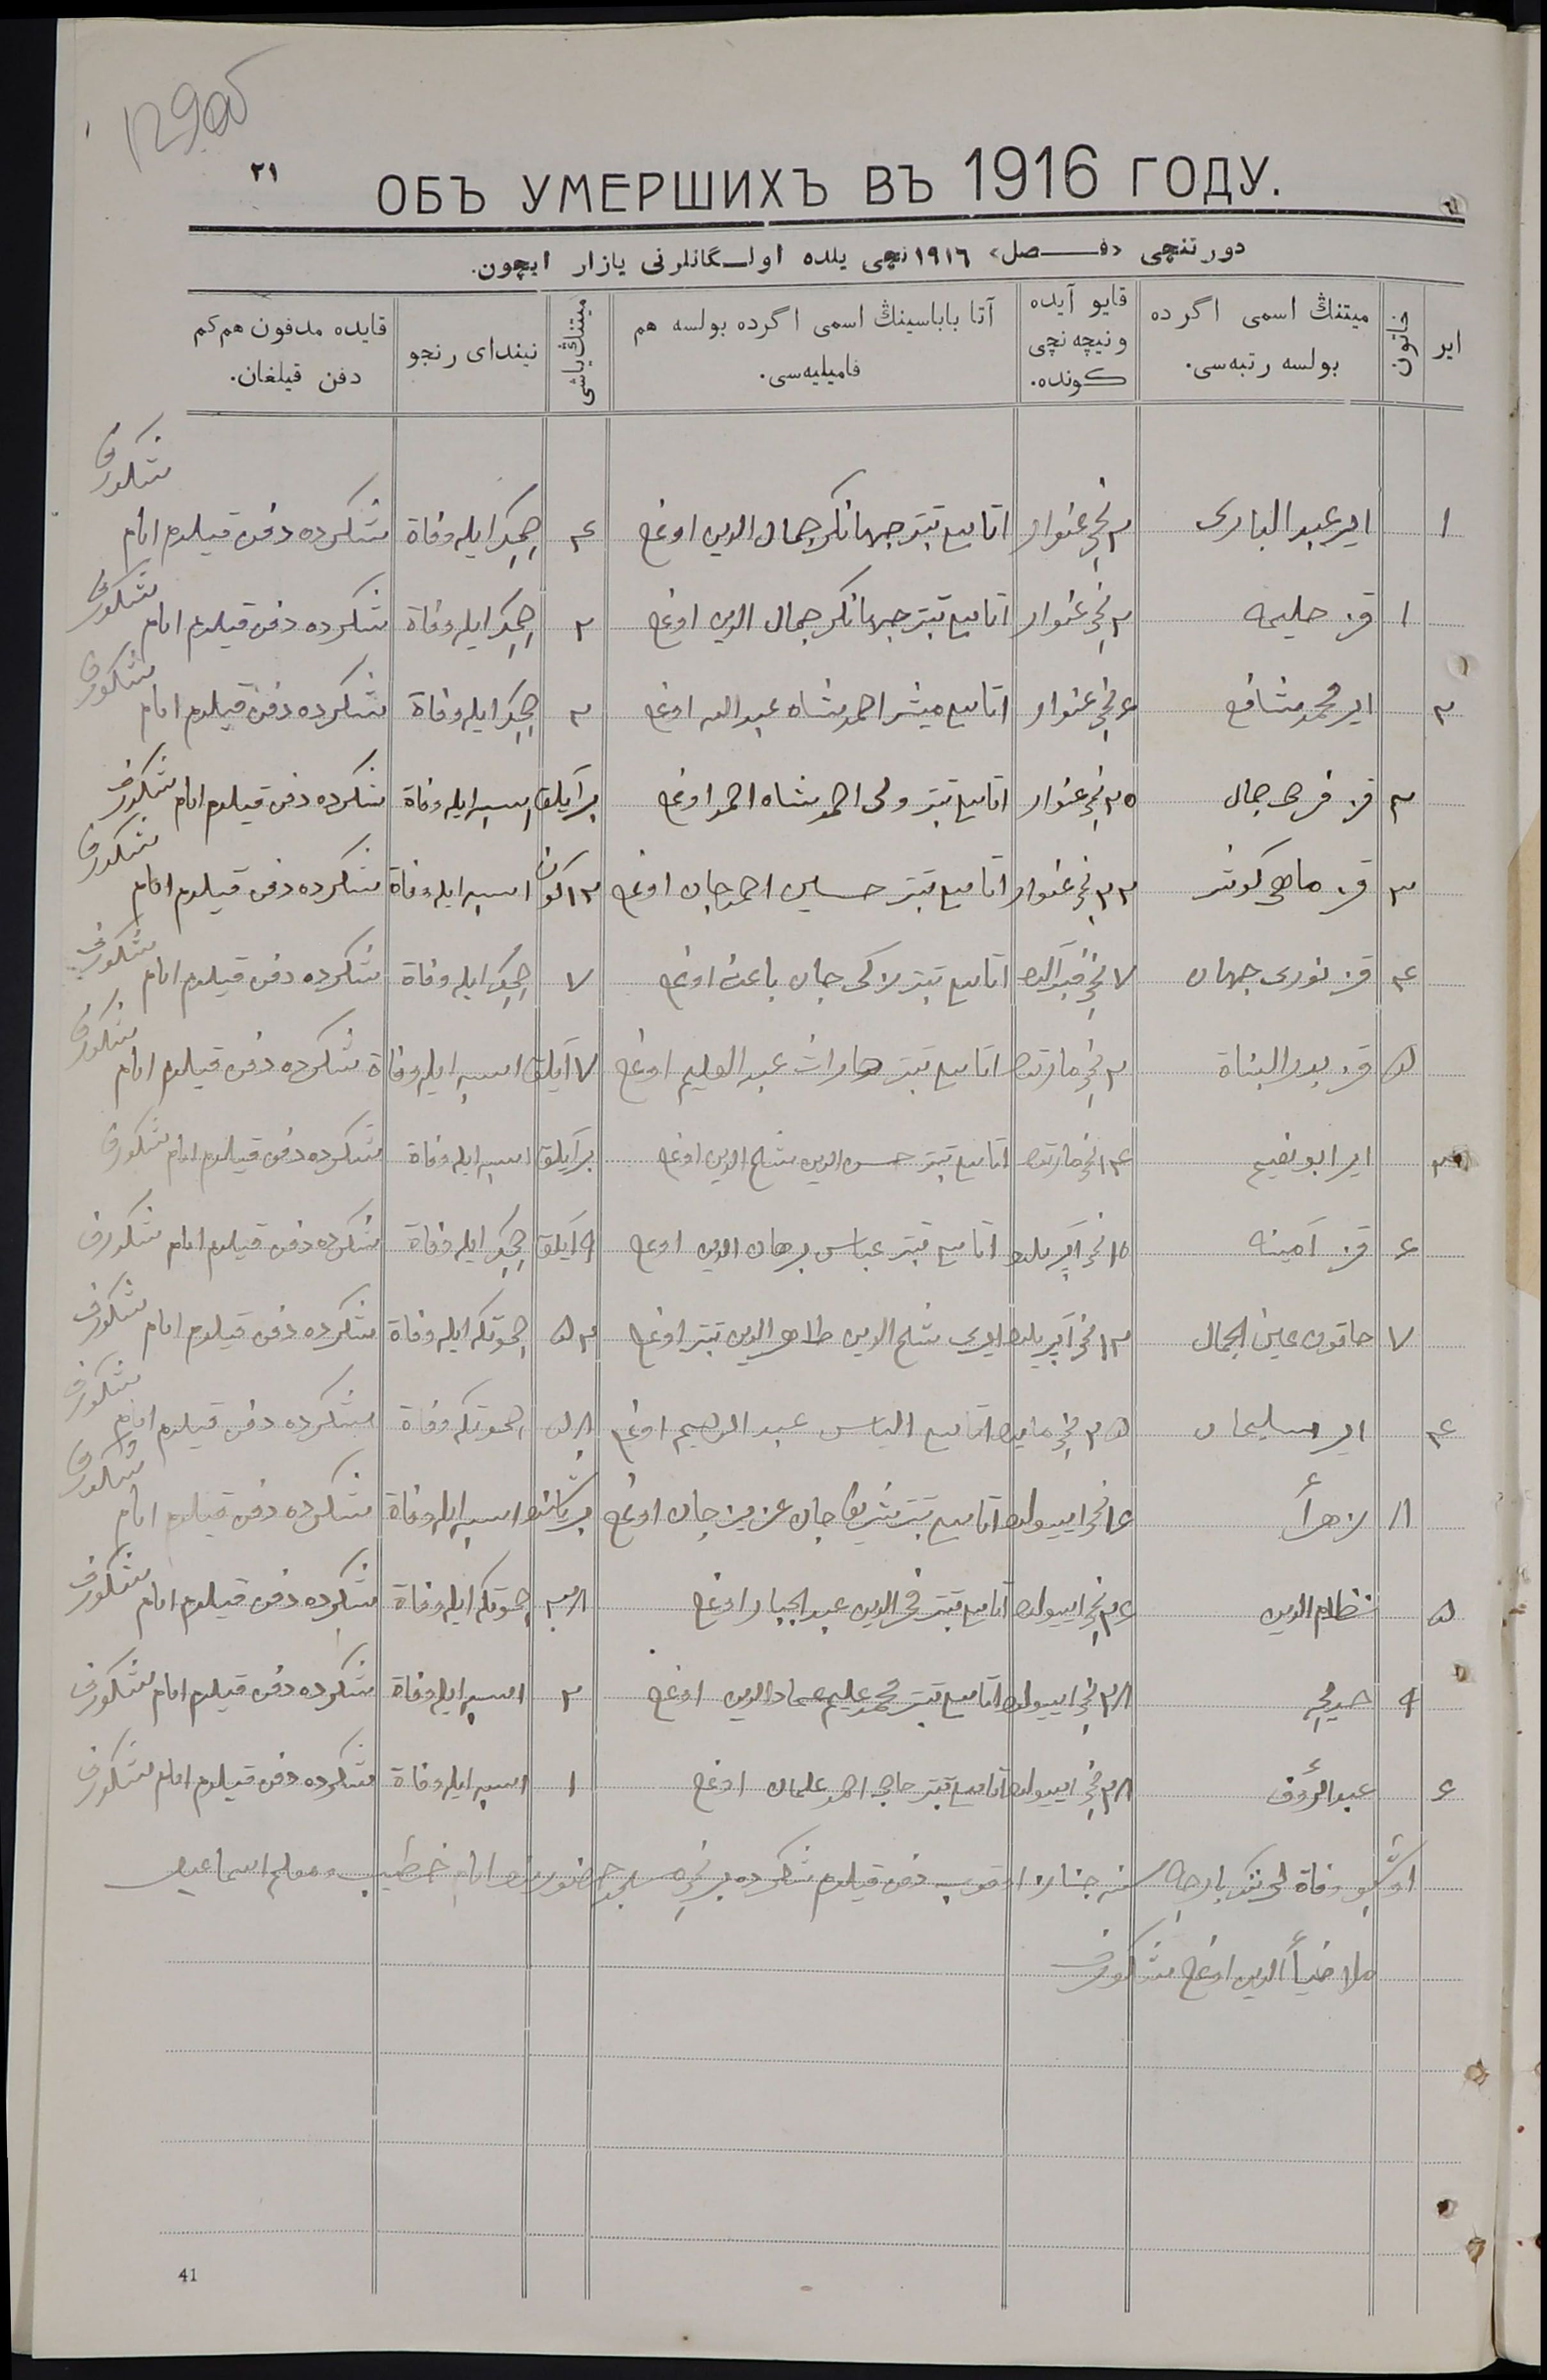 129об
٢١
ОБЪ УМЕРШИХЪ ВЪ 1916 ГОДУ.
دورتنچی «فـــصل» ١٩١٦ نچی یلده اولـــگانلرنی یازار ایچون.
ایر
خاتون
میتنڭ اسمی اگر ده بولسه رتبه‌سی.
قایو آیده ونیچه نچی کونده.
آتا باباسینڭ اسمی اگرده بولسه هم فامیلیه‌سی.
میتنڭ یاشی
نیندای رنجو
قایده مدفون هم کم دفن قیلغان.
١ ایر عبد الباری ٢ نچی غنوار اتاسی تبتر جهانکر جمال الدین اوغلی ٤ چچک ایله وفاة شکرده دفن قیلدم امام شکورف
١ قز حلیمه ٢ نچی غنوار اتاسی تبتر جهانکر جمال الدین اوغلی ٢ چچک ایله وفاة شکرده دفن قیلدم امام شکورف
٢ ایر محمد شافع ٦ نچی غنوار اتاسی میشر احمدشاه عبد الله اوغلی ٢ چچک ایله وفاة شکرده دفن قیلدم امام شکورف
٢ قز فرحی جمال ٢٥ نچی غنوار اتاسی تبتر ولی احمدشاه احمد اوغلی بر آیلق اسپه ایله وفاة شکرده دفن قیلدم امام شکورف
٣ قز ماهی کوثر ٢٢ نچی غنوار اتاسی تبتر حسین احمدجان اوغلی ١٢ کون اسپه ایله وفاة شکرده دفن قیلدم امام شکورف
٤ قز نوری جهان ٧ نچی اتاسی تبتر جان اوغلی ٧ چچک ایله وفاة شکرده دفن قیلدم امام شکورف
٥ قز بدر البناة ٢ نچی مارتده اتاسی تبتر عبد العلیم اوغلی ٧ آیلق اسپه ایله وفاة شکرده دفن قیلدم امام شکورف
٣ ایر ابو نعیم ١٤ نچی مارتده اتاسی تبتر حسن الدین اوغلی بر آیلق اسپه ایله وفاة شکرده دفن قیلدم امام شکورف
٦ قز آمینه ١٥ نچی آپریلده اتاسی تبتر عباس برهان الدین اوغلی ٩ آیلق چچک ایله وفاة شکرده دفن قیلدم امام شکورف
٧ خاتون عین الجمال ١٢ نچی آپریلده ایری طاهر الدین تبتر اوغلی ٥٢ چحوتکه ایله وفاة شکرده دفن قیلدم امام شکورف
٤ ایر سلیمان ٢٥ نچی مایده اتاسی الیاس عبد الرحیم اوغلی ٥٨ چحوتکه وفاة شکرده دفن قیلدم امام شکورف
٨ زهرأ ١٦ نچی اییولده اتاسی تبتر شریف جان عزیز جان اوغلی اسپه ایله وفاة شکرده دفن قیلدم امام شکورف
٥ نظام الدین ٢٦ نچی اییولده اتاسی تبتر فخر الدین عبد الجبار اوغلی ٢٨ چحوتکه ایله وفاة شکرده دفن قیلدم امام شکورف
٩ خدیجه ٢٨ نچی اییولده اتاسی تبتر محمد علیم عماد الدین اوغلی ٢ اسپه ایله وفاة شکرده دفن قیلدم امام شکورف
٦ عبد الرؤف ٢٨ نچی اییولده اتاسی تبتر حاجی احمد اوغلی ١ اسپه ایله وفاة شکرده دفن قیلدم امام شکورف
اوشبو وفاة لرینک بارچه سنه جنازا اوقوب دفن قیلدم شکرده برنچی مسجد حضورنده امام خطیب و معلم اسماعیل
ملا ضیأ الدین اوغلی شکورف
41